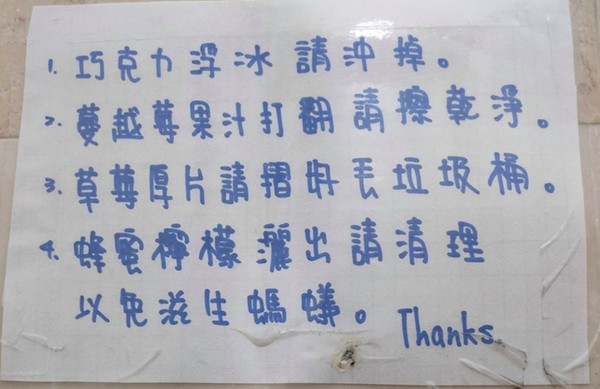 1. 巧克力浮冰 請沖掉。
2. 蔓越莓果汁打翻 請擦乾淨。
3. 草莓厚片請摺好丟垃圾桶。
4. 蜂蜜檸檬灑出請清理
以免滋生螞蟻。 Thanks.